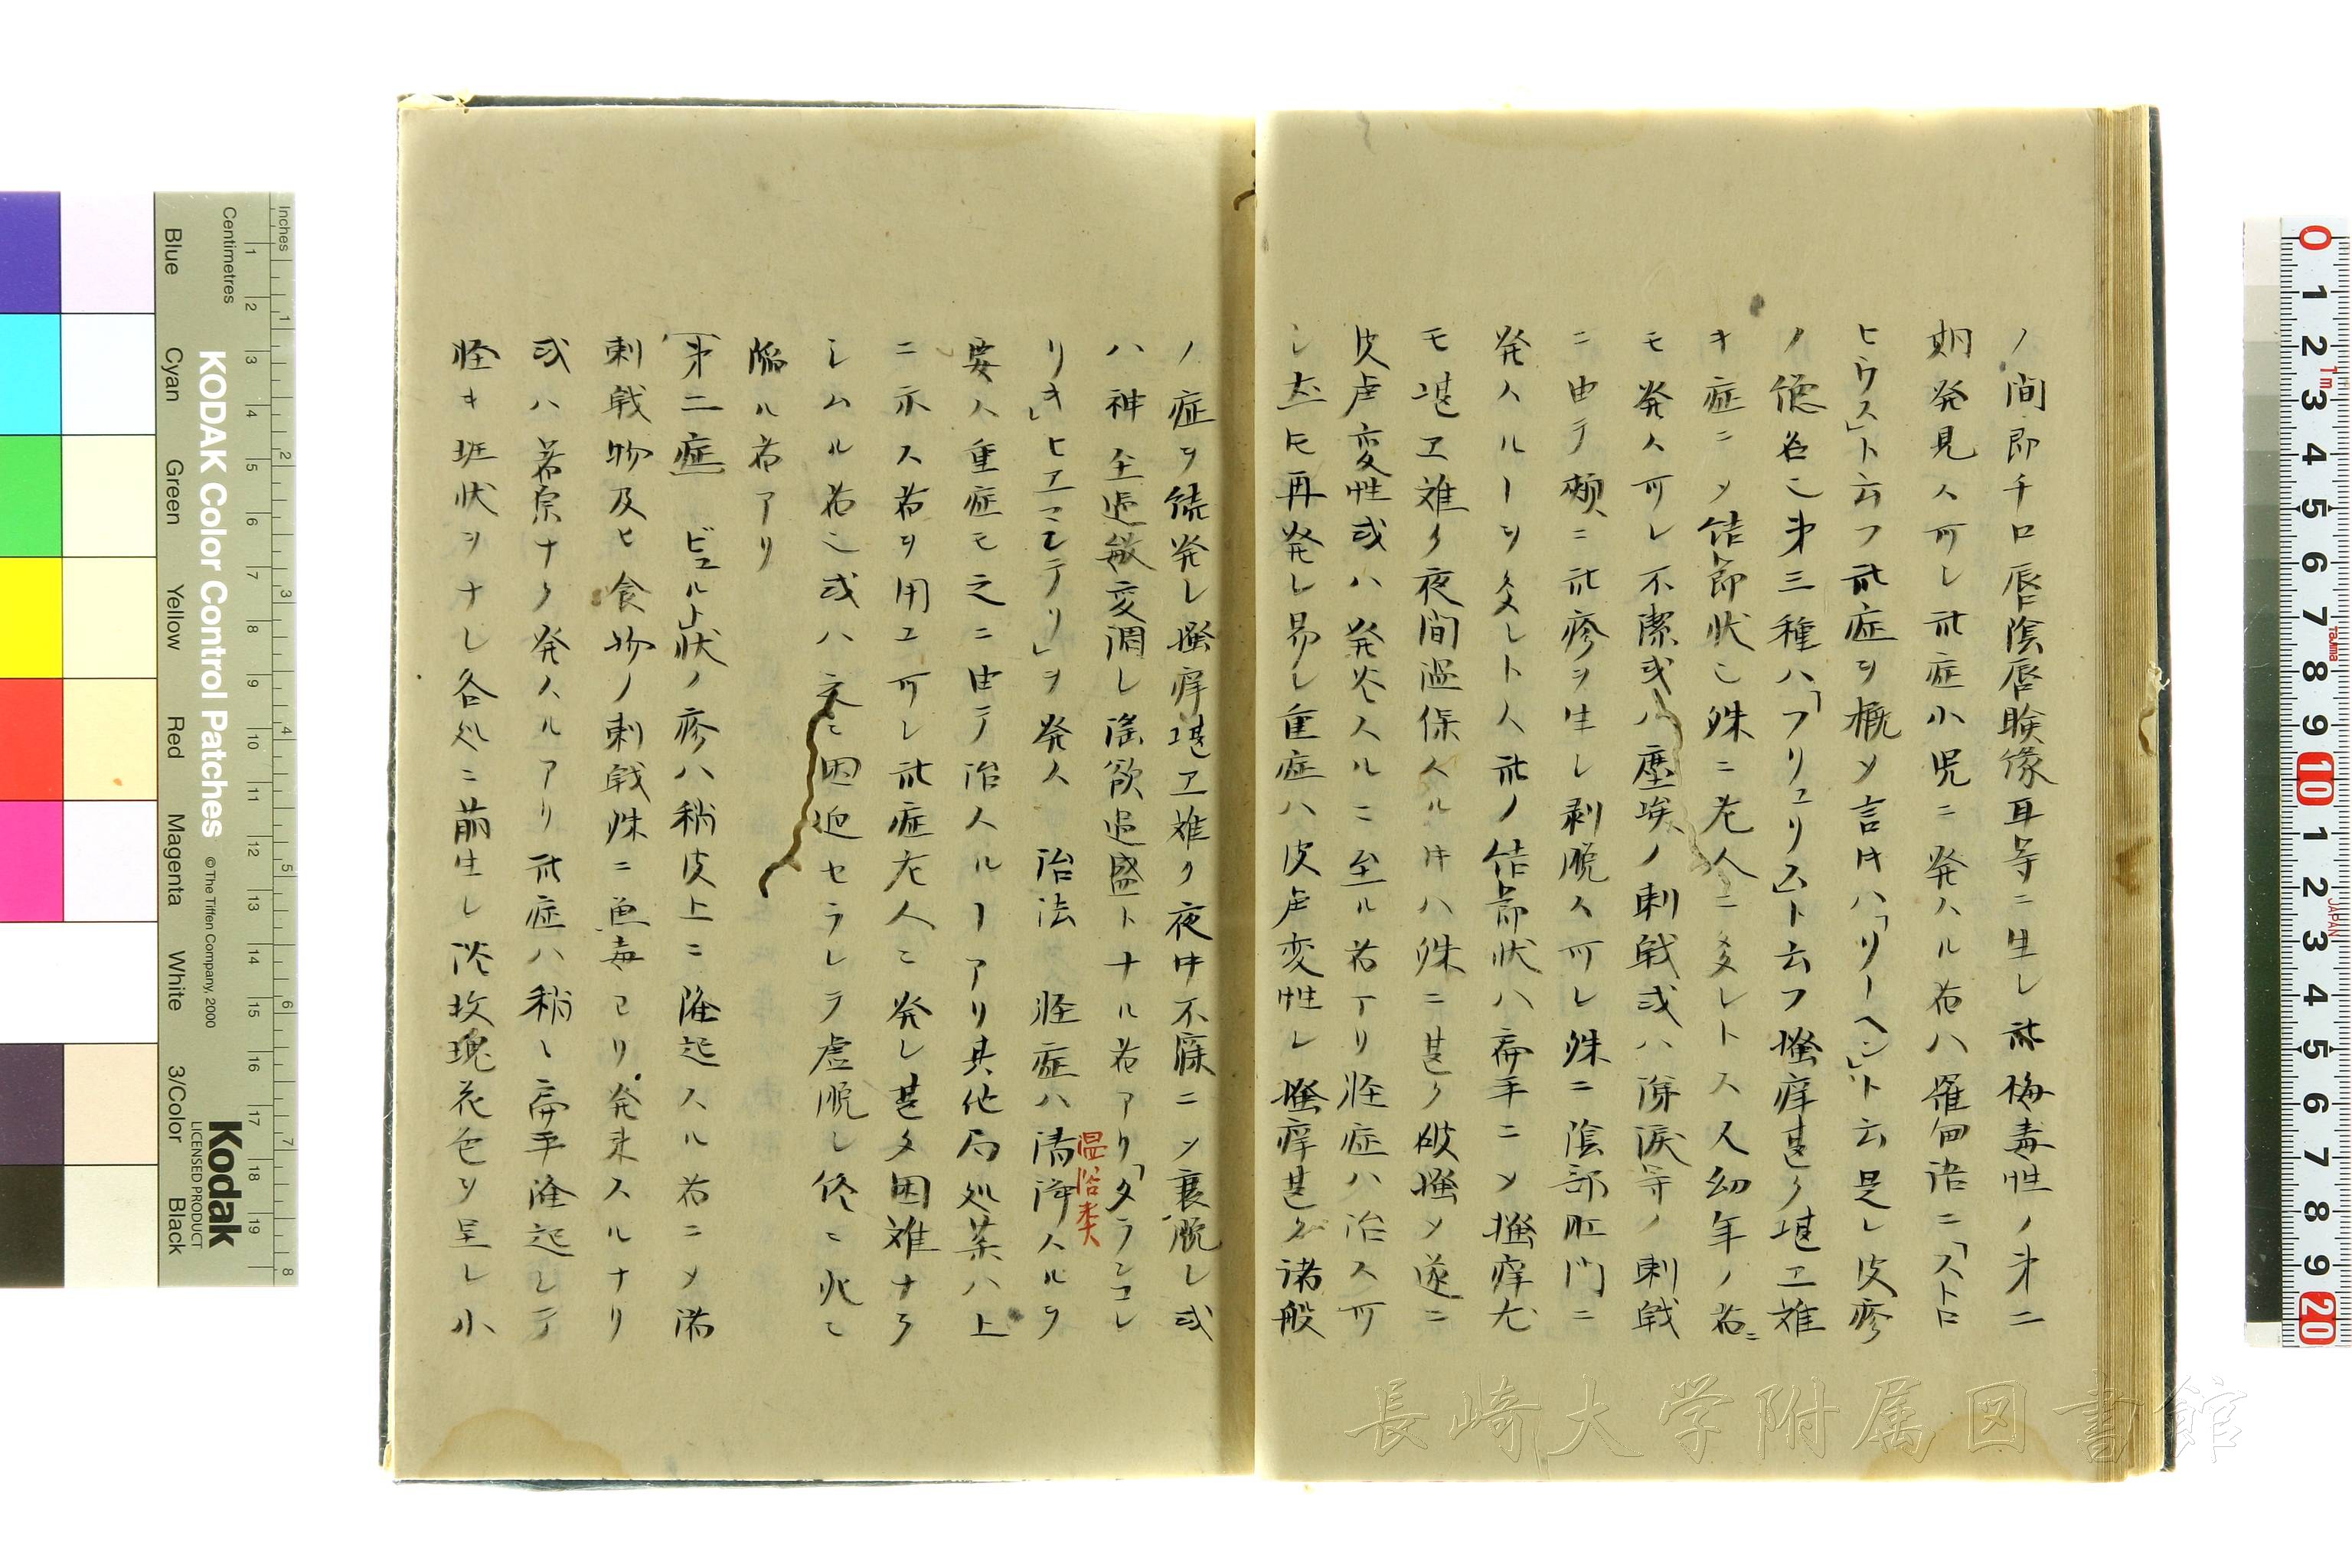 ノ間即チ口唇陰唇睑縁耳等ニ生レ此梅毒性ノ第二
期発見ス可レ此症小児ニ発スル者ハ羅甸語ニ「ストロ
ヒウス」ト云フ此症ヲ概メ言ヘハ「リーヘン」ト云是レ皮疹
ノ総名也第三種ハ「フリュリゴ」ト云フ掻痒甚タ堪エ難
キ症ニメ結節状也殊ニ老人ニ多シトス又幼年ノ者ニ
モ発ス可シ不潔或ハ塵埃ノ刺戟或ハ涕涙等ノ刺戟
ニ由テ頻ニ此疹ヲ生レ剥脱ス可レ殊ニ陰部肛門ニ
発スルヿヲ多シトス此ノ結節状ハ扁平ニメ掻痒尤
モ堪エ難ク夜間温保スル時ハ殊ニ甚ク破掻メ遂ニ
皮虚変性或ハ発炎スルニ至ル者アリ軽症ハ治ス可
シ然ヒ再発シ易シ重症ハ皮虚変性シ掻痒甚ダ諸般
ノ症ヲ続発シ掻痒堪エ難ク夜中不寐ニメ衰脱シ或
ハ神至過敏変調シ淫欲過盛トナル者アリ「タランコレ
リキ」ヒエミテリ」ヲ発ス　治法　軽症ハ清浄スルヲ
温浴类
要ス重症モ之ニ由テ治スルヿアリ其他局処薬ハ上
ニ示ス者ヲ用ユ可シ此症老人ニ発シ甚タ困難ナラ
シムル者也或ハ之ニ困迫セラレテ虚脱シ終ニ死ニ
陥ル者アリ
第二症　ビュルト状ノ疹ハ稍皮上ニ隆起スル者ニメ諸
刺戟物及ヒ食物ノ刺戟殊ニ魚毒ヨリ発来スルナリ
或ハ著原ナク発スルアリ此症ハ稍々扁平隆起シテ
軽キ斑状ヲナシ各処ニ萠生シ淡玫瑰花色ヲ呈シ小
KODAK Color Control Patches
© The Tiffen Company, 2000
Kodak
LICENSED PRODUCT
Inches
Centimetres
Blue Cyan Green Yellow Red Magenta White 3/Color Black
長崎大学附属図書館